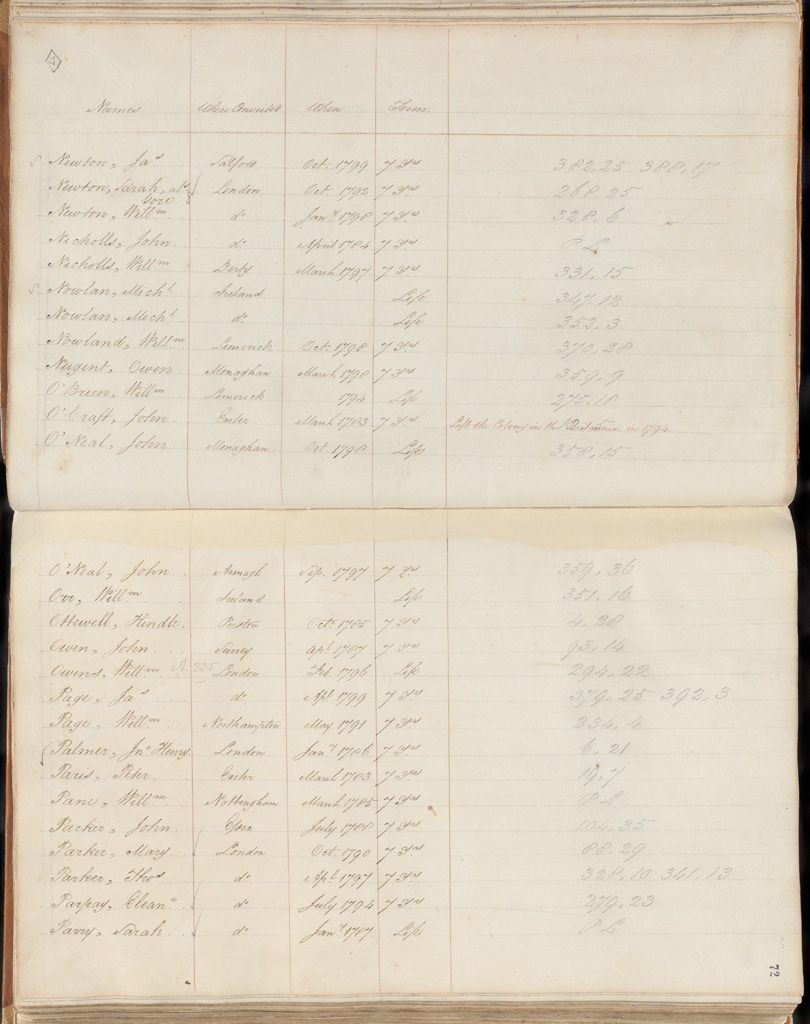 Names Where Convicted When Term
S Newton, Jas Salford Oct. 1799 7 Yrs 382,25 388,17
Newton, Sarah, als London Oct. 1792 7 Yrs 268,25
Newton, Willm do Jany 1798 7 Yrs 328,6
Nicholls, John do April 1784 7 Yrs P L
Nicholls, Willm Derby March 1797 7 Yrs 331,15
S Nowlan, Michl Ireland Life 347,12
Nowlan, Michl do Life 353,3
Nowland, Willm Limerick Oct. 1798 7 Yrs 370,28
Nugent, Owen Monaghan March 1798 7 Yrs 359,9
O'Brien, Willm Limerick 1794 Life 275,18
O'Craft, John Exeter March 1783 7 Yrs Left the Colony in the Britannia in 1794.
O'Neal, John Monaghan Oct 1798 Life 358,15
O'Neal, John Armagh Sep. 1797 7 Yrs 359,36
Orr, Willm Ireland Life 351,16
Ottewell, Hindle Preston Octr 1785 7 Yrs 4,28
Owen, John Surrey Apl 1787 7 Yrs 93,14
Owens, Willm 235 London Feb. 1796 Life 294,22
Page, Jas do Apl 1799 7 Yrs 379,25 392,3
Page, Willm Northampton May 1791 7 Yrs 234,4
Palmer, Jno Henry London Jany 1786 7 Yrs 6,21
Paris, Peter Exeter March 1783 7 Yrs 19,7
Pane, Willm Nottingham March 1785 7 Yrs P L
Parker, John Essex July 1788 7 Yrs 104,35
Parker, Mary London Oct. 1790 7 Yrs 88,29
Parker, Thos do Apl 1797 7 Yrs 328,10 341,13
Parpay, Eleanr do July 1794 7 Yrs 279,23
Parry, Sarah do Jany 1787 Life P L
72